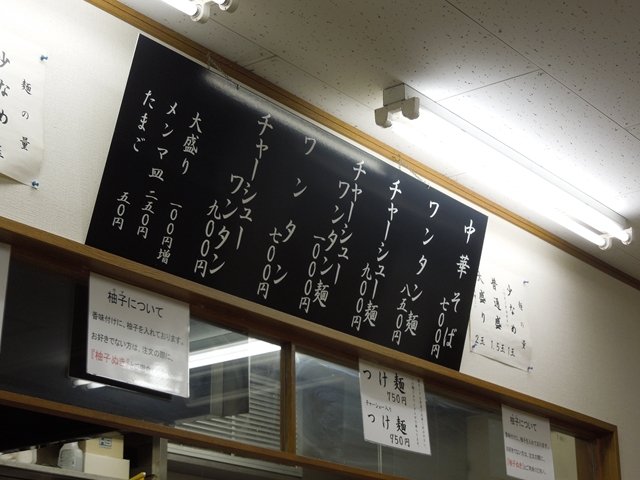 中華そば 七〇〇円
ワンタン麺 八五〇円
チャーシュー麺 九〇〇円
チャーシューワンタン麺 一〇〇〇円
ワンタン 七〇〇円
チャーシューワンタン 九〇〇円
大盛り 一〇〇円増
メンマ皿 二五〇円
たまご 五〇円
麺の量
少なめ 1玉
普通盛 1.5玉
大盛り 2玉
麺の量
少なめ
柚子について
香味付けに、柚子を入れております。
お好きでない方は、注文の際に、
『柚子ぬき』
つけ麺
750円
チャーシュー入り
つけ麺
950円
柚子について